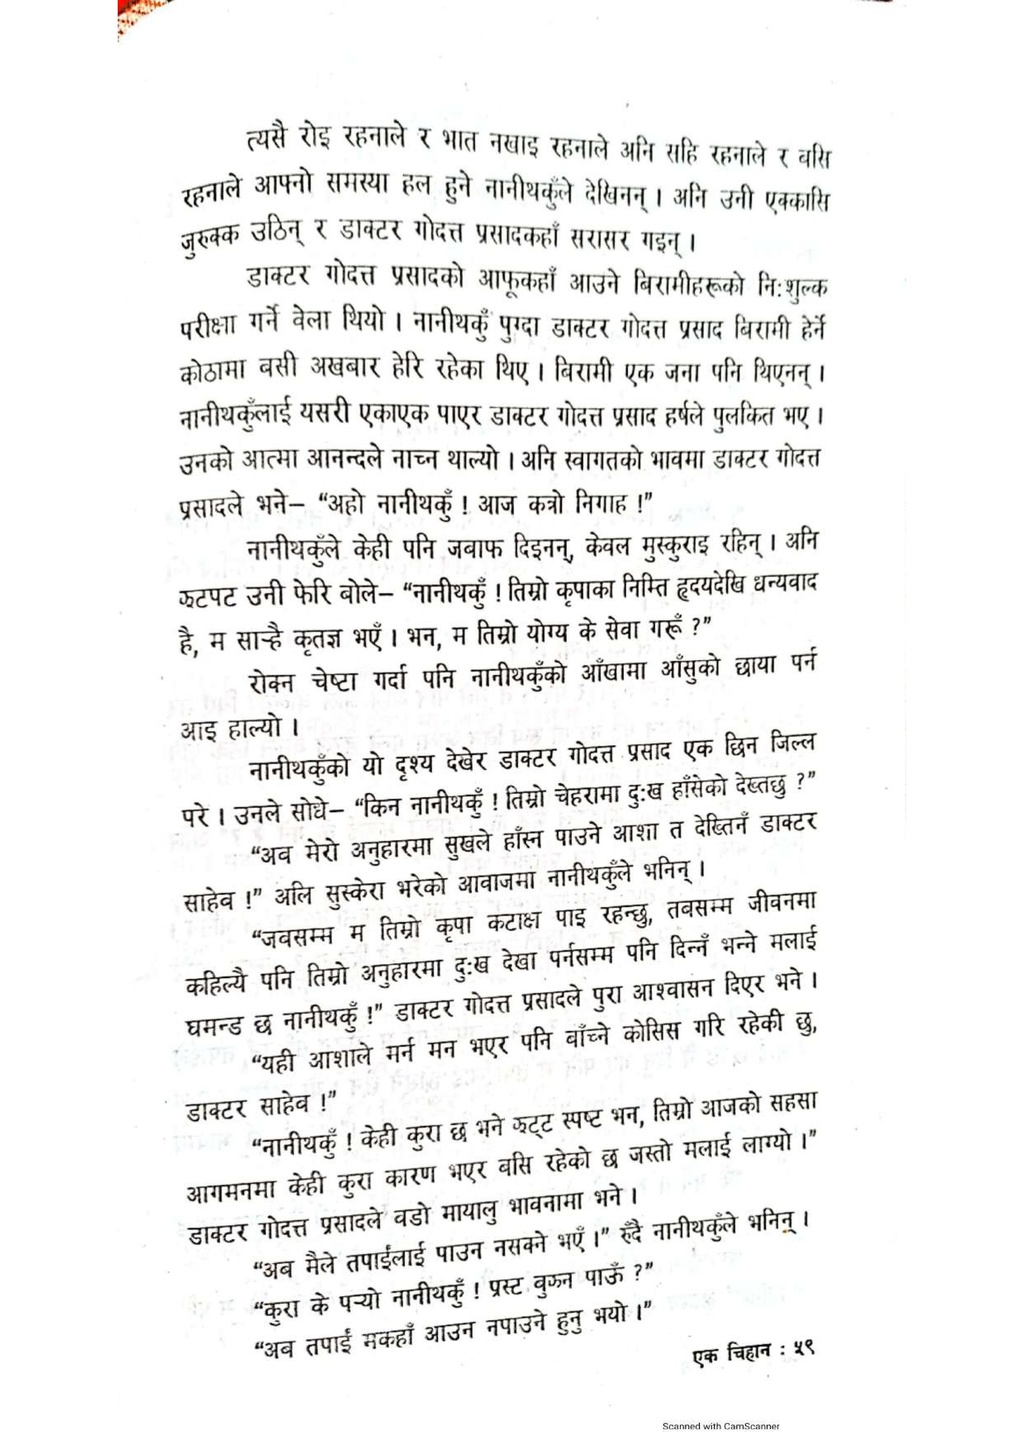 त्यसै रोइ रहनाले र भात नखाइ रहनाले अनि सहि रहनाले र वसि
रहनाले आफ्नो समस्या हल हुने नानीथकुँले देखिनन् । अनि उनी एक्कासि
जुरुक्क उठिन् र डाक्टर गोदत्त प्रसादकहाँ सरासर गइन् ।
डाक्टर गोदत्त प्रसादको आफूकहाँ आउने बिरामीहरूको नि:शुल्क
परीक्षा गर्ने वेला थियो । नानीथकुँ पुग्दा डाक्टर गोदत्त प्रसाद बिरामी हेर्ने
कोठामा वसी अखबार हेरि रहेका थिए । बिरामी एक जना पनि थिएनन् ।
नानीथकुँलाई यसरी एकाएक पाएर डाक्टर गोदत्त प्रसाद हर्षले पुलकित भए ।
उनको आत्मा आनन्दले नाच्न थाल्यो । अनि स्वागतको भावमा डाक्टर गोदत्त
प्रसादले भने– “अहो नानीथकुँ ! आज कत्रो निगाह !”
नानीथकुँले केही पनि जवाफ दिइनन्, केवल मुस्कुराइ रहिन् । अनि
झटपट उनी फेरि बोले– “नानीथकुँ ! तिम्रो कृपाका निम्ति हृदयदेखि धन्यवाद
है, म साऱ्है कृतज्ञ भएँ । भन, म तिम्रो योग्य के सेवा गरूँ ?”
रोक्न चेष्टा गर्दा पनि नानीथकुँको आँखामा आँसुको छाया पर्न
आइ हाल्यो ।
नानीथकुँको यो दृश्य देखेर डाक्टर गोदत्त प्रसाद एक छिन जिल्ल
परे । उनले सोधे– “किन नानीथकुँ ! तिम्रो चेहरामा दु:ख हाँसेको देख्तछु ?”
“अव मेरो अनुहारमा सुखले हाँस्न पाउने आशा त देख्तिनँ डाक्टर
साहेव !” अलि सुस्केरा भरेको आवाजमा नानीथकुँले भनिन् ।
“जवसम्म म तिम्रो कृपा कटाक्ष पाइ रहन्छु, तवसम्म जीवनमा
कहिल्यै पनि तिम्रो अनुहारमा दु:ख देखा पर्नसम्म पनि दिन्नँ भन्ने मलाई
घमन्ड छ नानीथकुँ !” डाक्टर गोदत्त प्रसादले पुरा आश्वासन दिएर भने ।
“यही आशाले मर्न मन भएर पनि वाँच्ने कोसिस गरि रहेकी छु,
डाक्टर साहेव !”
“नानीथकुँ ! केही कुरा छ भने झट्ट स्पष्ट भन, तिम्रो आजको सहसा
आगमनमा केही कुरा कारण भएर वसि रहेको छ जस्तो मलाई लाग्यो ।”
डाक्टर गोदत्त प्रसादले वडो मायालु भावनामा भने ।
“अब मैले तपाईंलाई पाउन नसक्ने भएँ ।” रुँदै नानीथकुँले भनिन् ।
“कुरा के पऱ्यो नानीथकुँ ! प्रस्ट वुझ्न पाऊँ ?”
“अव तपाईं मकहाँ आउन नपाउने हुनु भयो ।”
एक चिहान : ५९
Scanned with CamScanner